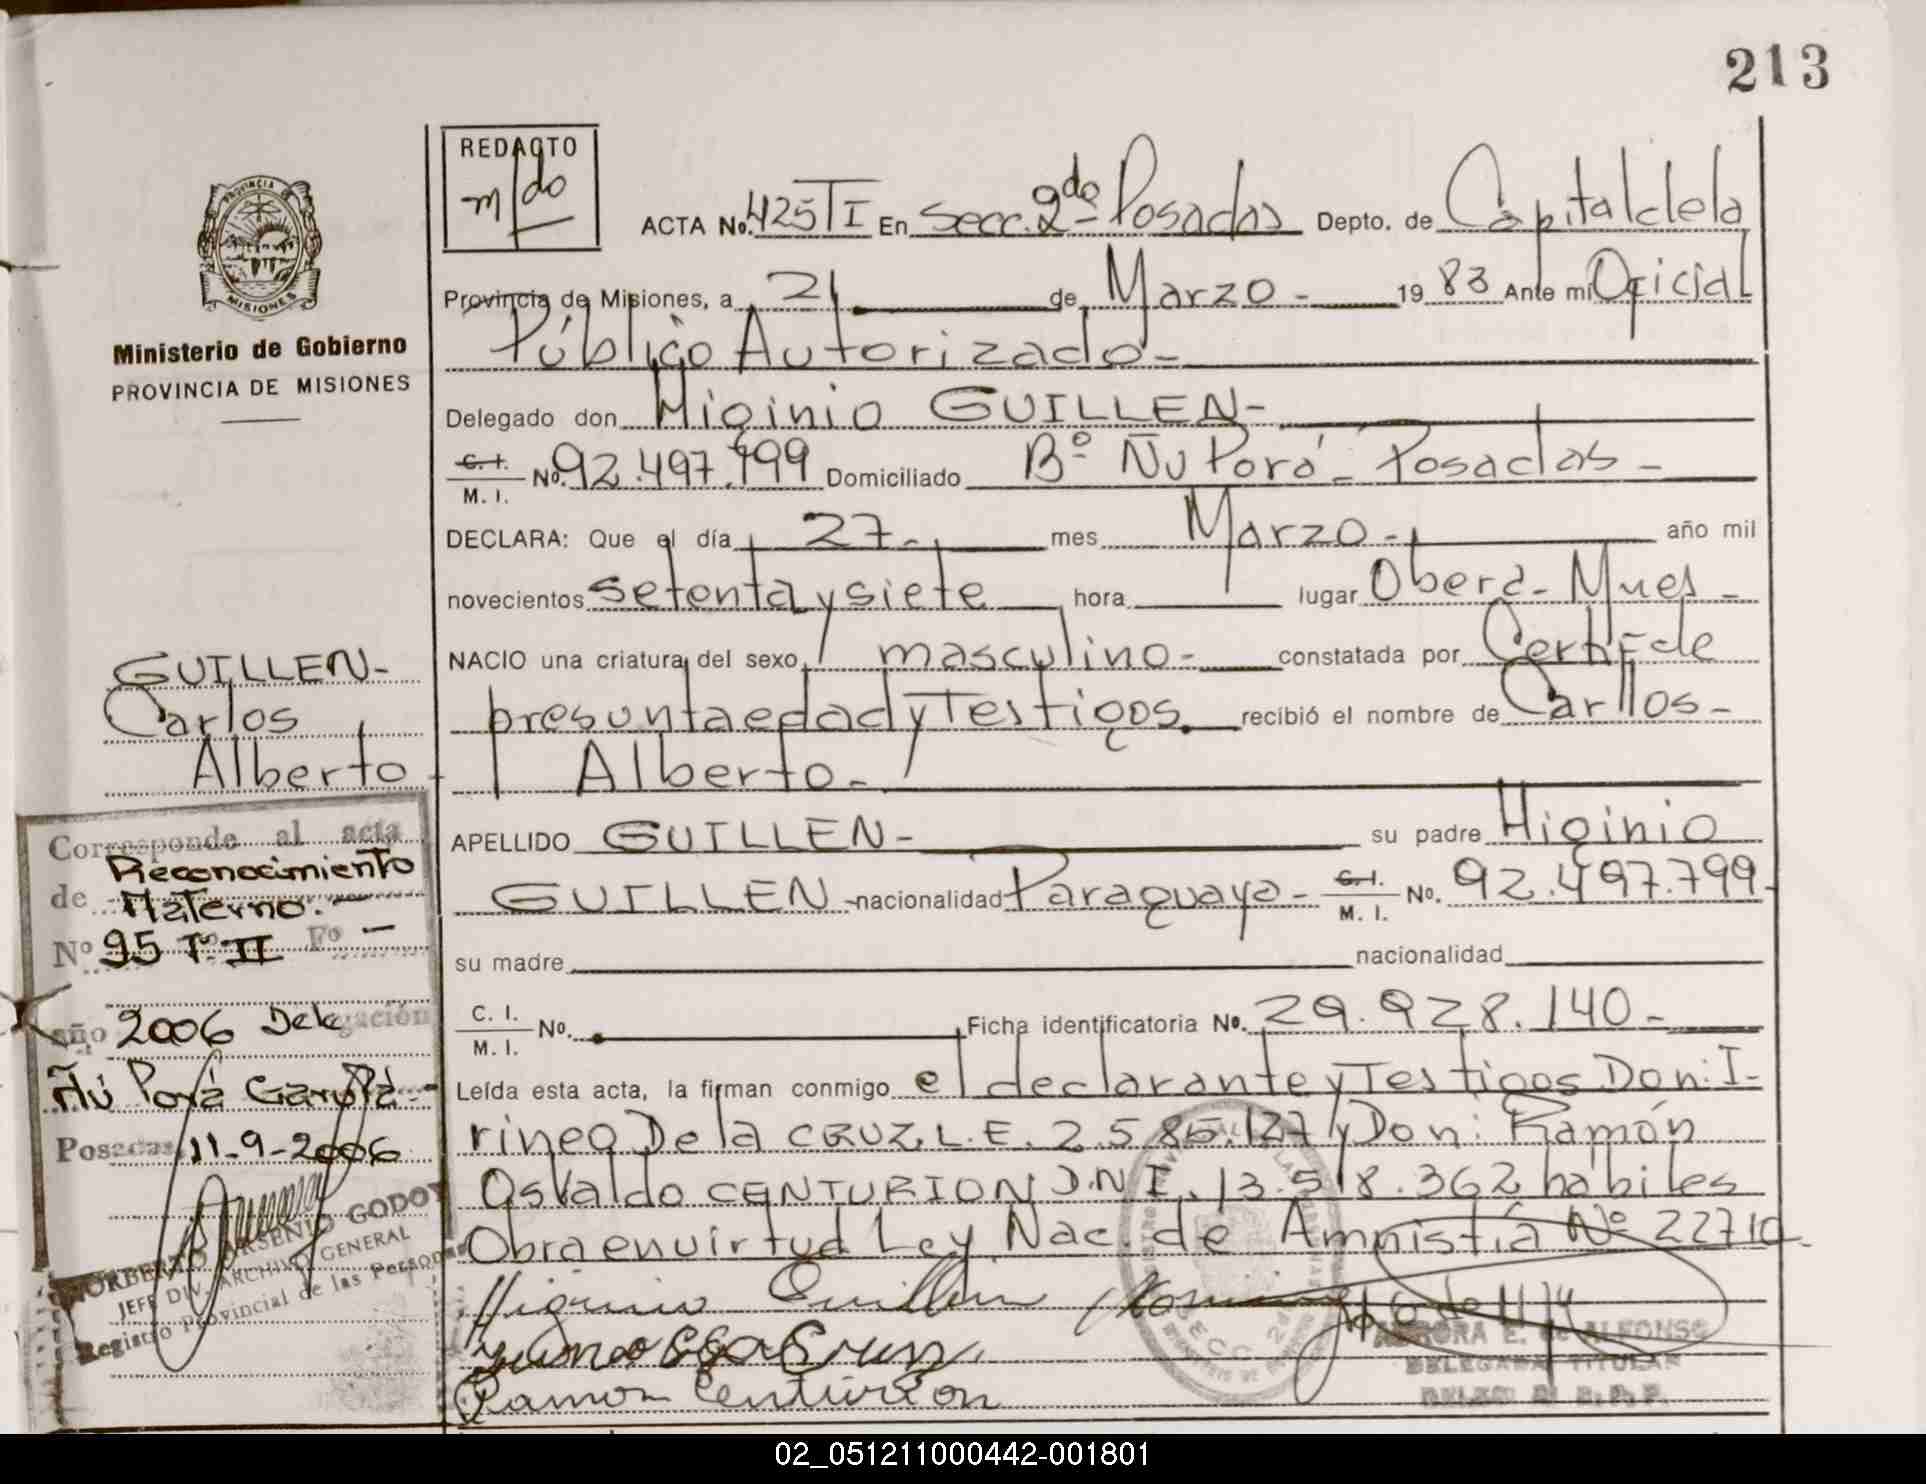 213
REDACTO
m/do
ACTA No. 425 TI En Secc. 2da- Posadas Depto. de Capital de la
Provincia de Misiones, a 21 de Marzo - 19 83 Ante mi Oficial
Público Autorizado-
Delegado don Higinio GUILLEN-
C. I. / M. I. No. 92.497.799 Domiciliado Bº Ñu Porá - Posadas -
DECLARA: Que el día 27- mes Marzo - año mil
novecientos setenta y siete hora lugar Oberá - Mnes -
NACIO una criatura del sexo masculino - constatada por Certif de
presunta edad y Testigos. recibió el nombre de Carllos -
Alberto -
APELLIDO GUILLEN - su padre Higinio
GUILLEN - nacionalidad Paraguaya - C. I. / M. I. No. 92.497.799-
su madre nacionalidad
C. I. / M. I. No. Ficha identificatoria No. 29.928.140-
Leída esta acta, la firman conmigo el declarante y Testigos Don: I-
rineo De la CRUZ, L.E. 2.585.127 y Don: Ramón
Osvaldo CENTURION D.N.I. 13.518.362 habiles
Obra en virtud Ley Nac. de Amnistía Nº 22710-
Higinio Guillen
Ramon Centurion
AURORA E. de ALFONSO
DELEGADA TITULAR
PROVINCIA DE
MISIONES
Ministerio de Gobierno
PROVINCIA DE MISIONES
GUILLEN-
Carlos
Alberto
Corresponde al acta
de Reconocimiento
Materno.-
Nº 95 Tº II Fº -
año 2006 Delegación
Ñú Porá Garupá-
Posadas, 11-9-2006
NORBERTO ARSENIO GODOY
JEFE DIV. ARCHIVO GENERAL
Registro Provincial de las Personas
02_051211000442-001801